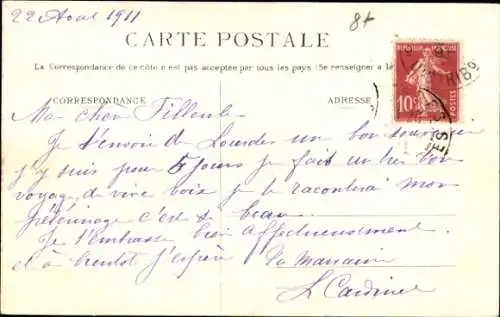 22 Aout 1911
8+
CARTE POSTALE
La Correspondance de ce côté n'est pas acceptée par tous les pays (Se renseigner à la
CORRESPONDANCE
ADRESSE
10c
POSTES
Ma chère Filleule
Je t'envoie de Lourdes un bon souvenir
j'y suis pour 5 jours je fait un très bon
voyage de vive voix je te racontrai mon
pelerinage c'est si beau
Je t'embrasse bien affectueusement
et à bientot j'espère
ta Marraine
L Cardinel